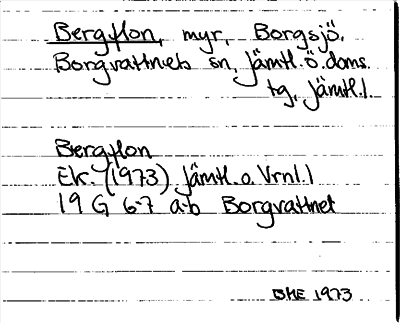 Bergflon, myr, Borgsjö,
Borgvattnets sn, Jämtl. ö. doms.
tg, Jämtl. l.
Bergflon
Ek. (1973) Jämtl. o. Vrnl. l
19 G 6-7 a-b Borgvattnet
BHE 1973